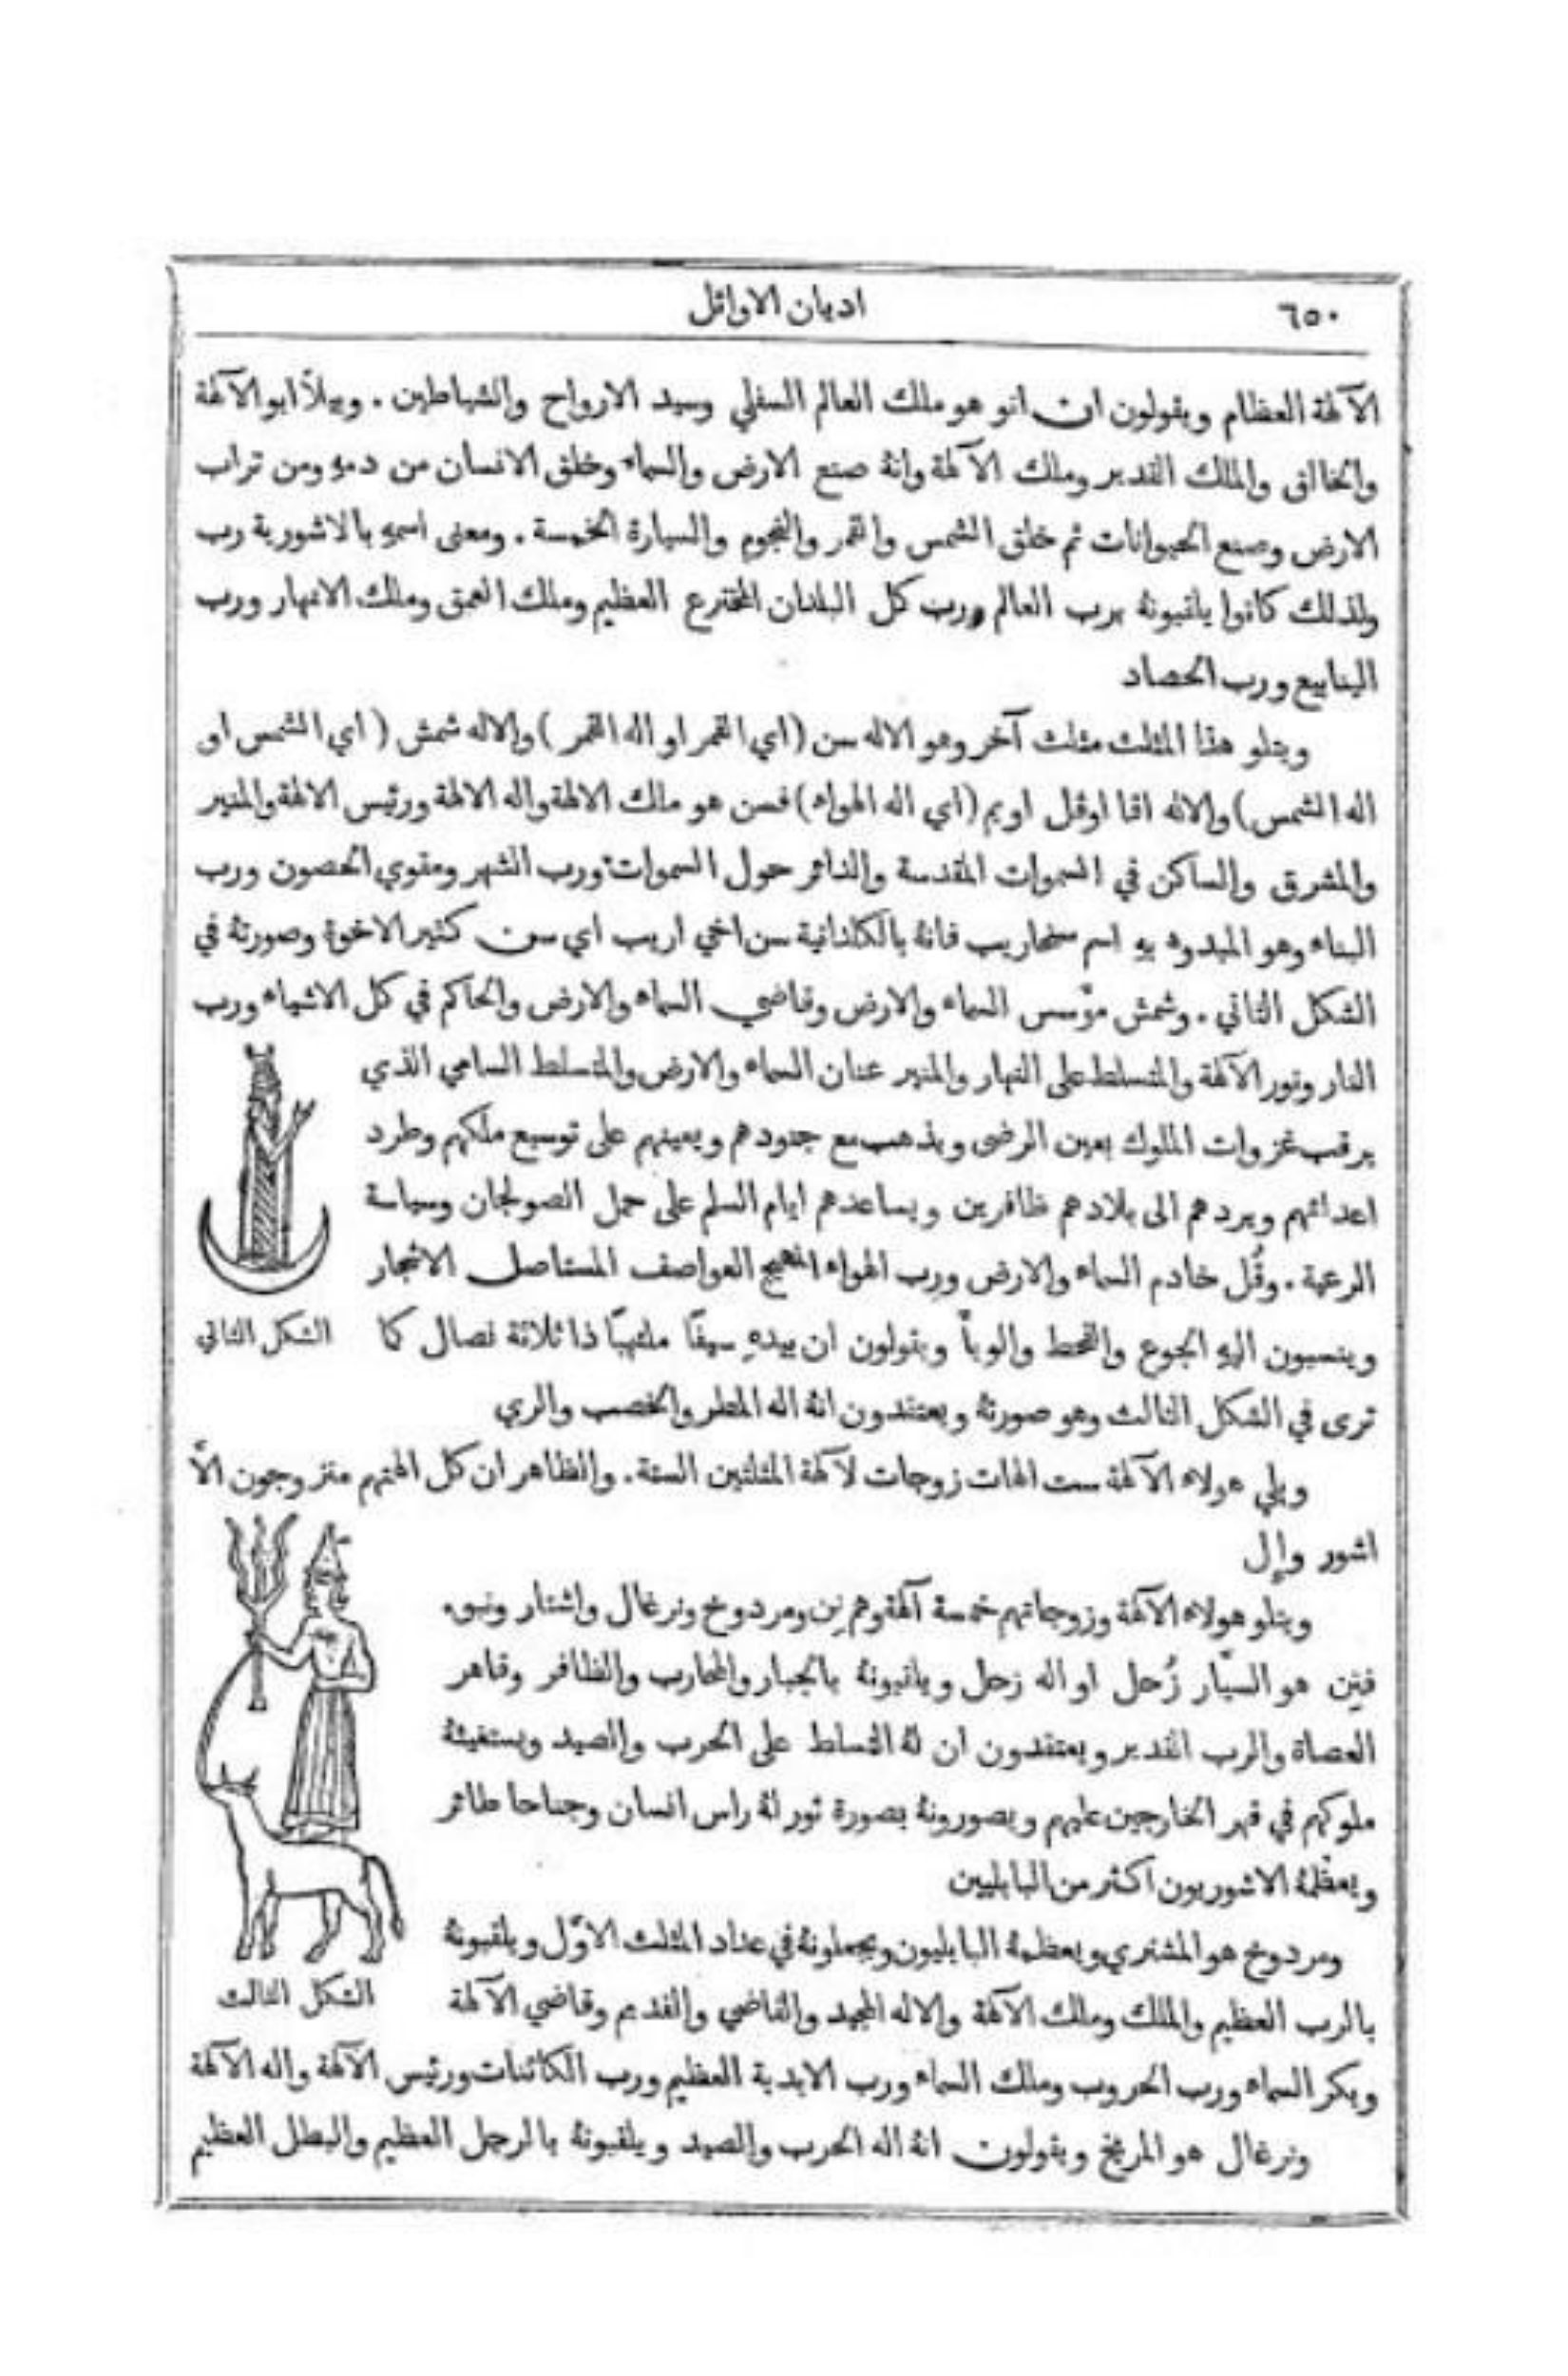 ٦٥٠
اديان الاوائل
الآلهة العظام ويقولون ان انو هو ملك العالم السفلي وسيد الارواح والشياطين . وبيلاً ابو الآلهة
والخالق والملك القدير وملك الآلهة وانهُ صنع الارض والسماء وخلق الانسان من دمهِ ومن تراب
الارض وصنع الحيوانات ثم خلق الشمس والقمر والنجوم والسيارة الخمسة . ومعنى اسمهِ بالاشورية رب
ولذلك كانوا يلقبونهُ برب العالم ورب كل البلدان المخترع العظيم وملك العمق وملك الانهار ورب
الينابيع ورب الحصاد
ويتلو هذا المثلث مثلث آخر وهو الاله سن (اي القمر او اله القمر) والاله شمش (اي الشمس او
اله الشمس) والاله افا اوڤل اويم (اي اله الهواء) فسن هو ملك الالهة واله الالهة ورئيس الالهة والمنير
والمشرق والساكن في السموات المقدسة والدائر حول السموات ورب الشهر ومقوي الحصون ورب
البناء وهو المبدوء بهِ اسم سنحاريب فانهُ بالكلدانية سن اخي اريب اي سن كثير الاخوة وصورتهُ في
الشكل الثاني . وشمش مؤسس السماء والارض وقاضي السماء والارض والحاكم في كل الاشياء ورب
النار ونور الآلهة والمتسلط على النهار والمنير عنان السماء والارض والمتسلط السامي الذي
يرقب غزوات الملوك بعين الرضى ويذهب مع جنودهم ويعينهم على توسيع ملكهم وطرد
اعدائهم ويردهم الى بلادهم ظافرين ويساعدهم ايام السلم على حمل الصولجان وسياسة
الرعية . وڤُل خادم السماء والارض ورب الهواء المهيج العواصف المستاصل الاشجار
وينسبون اليهِ الجوع والقحط والوبأ ويقولون ان بيدهِ سيفًا ملتهبًا ذا ثلاثة نصال كما
الشكل الثاني
ترى في الشكل الثالث وهو صورتهُ ويعتقدون انهُ اله المطر والخصب والري
ويلي هولاء الآلهة ست الهات زوجات لآلهة المثلثين الستة . والظاهر ان كل الهتهم متزوجون الاَّ
اشور وإل
ويتلو هولاء الآلهة وزوجاتهم خمسة آلهة وهم نِن ومردوخ ونرغال واشتار ونبو.
فنِن هو السيّار زُحل او اله زحل ويلقبونهُ بالجبار والمحارب والظافر وقاهر
العصاة والرب القدير ويعتقدون ان لهُ التسلط على الحرب والصيد ويستغيثهُ
ملوكهم في قهر الخارجين عليهم ويصورونهُ بصورة ثور لهُ راس انسان وجناحا طائر
ويعظّمهُ الاشوريون اكثر من البابليين
ومردوخ هو المشتري ويعظمهُ البابليون ويجعلونهُ في عداد المثلث الاوَّل ويلقبونهُ
بالرب العظيم والملك وملك الآلهة والاله المجيد والقاضي والقديم وقاضي الآلهة
الشكل الثالث
وبكر السماء ورب الحروب وملك السماء ورب الابدية العظيم ورب الكائنات ورئيس الآلهة واله الآلهة
ونرغال هو المريخ ويقولون انهُ اله الحرب والصيد ويلقبونهُ بالرجل العظيم والبطل العظيم